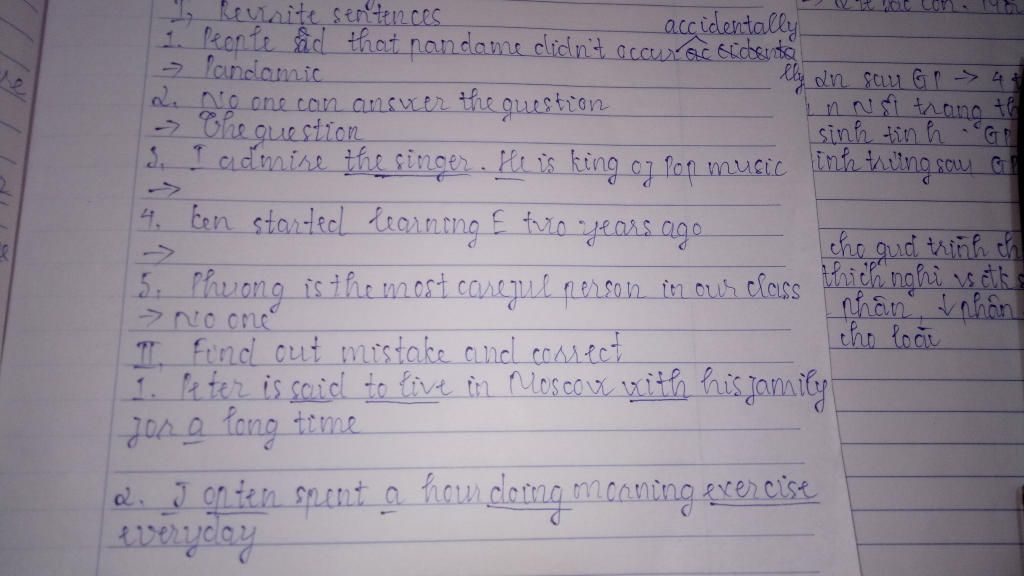 I, Rewrite sentences
accidentally
1. People said that pandame didn't occur accidenta
lly
→ Pandamic
2. No one can answer the question
→ The question
3. I admire the singer. He is king of Pop music
→
4. Ken started learning E two years ago
→
5. Phuong is the most careful person in our class
→ No one
II, Find out mistake and correct
1. Peter is said to live in Moscow with his family
for a long time
2. I often spent a hour doing morning exercise
everyday
ăn sau GP → 4 t
n NST trong th
sinh tinh. GP
inh trứng sau GP
cho quá trình ch
thích nghi vs đk s
phân, ↓ phân
cho loài